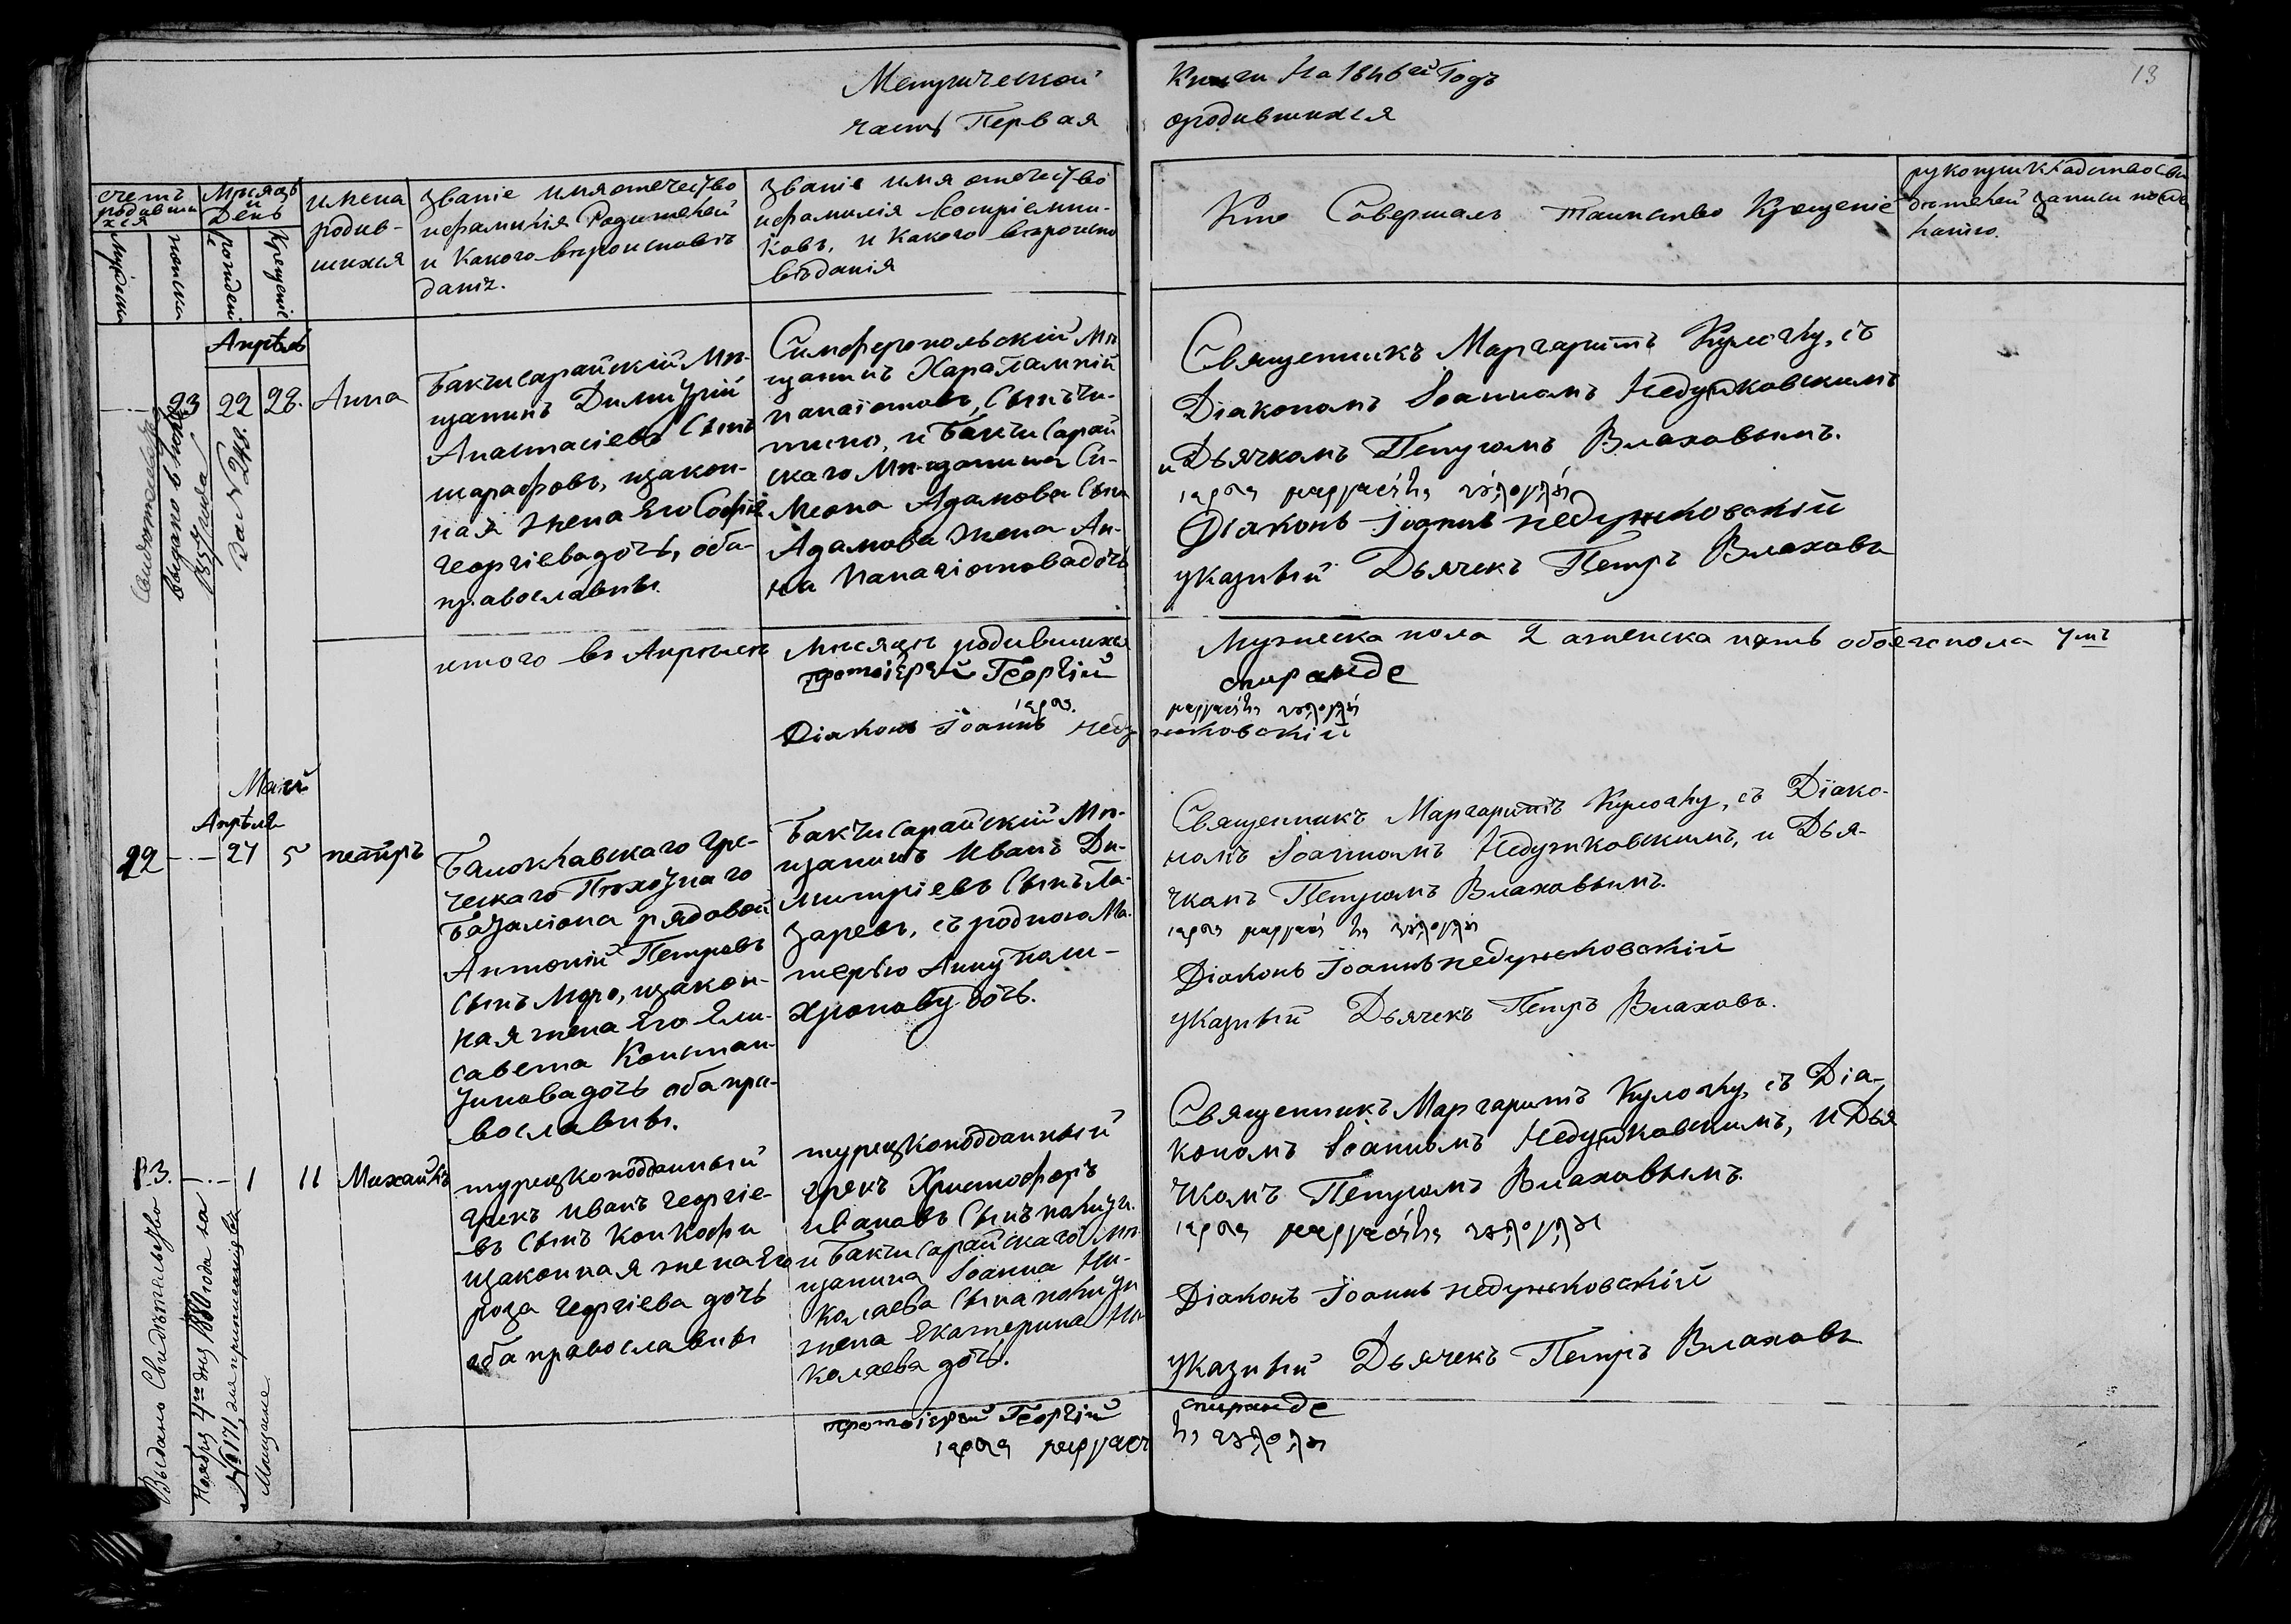 Метрической
часть Первая
Книги На 1846й Годъ
ородившихся
13
счетъ родивши хся
Мѣсяцъ и День
имена родив-шихся
Званіе имя отечество
ифамилія Родителей
и Какого вѣроисповѣ
даніѧ.
Званіе имя отечество
ифамилія Воспріемни-
ковъ, и Какого вѣроиспо
вѣданія
Кто Совершалъ Таинство Крещеніе
рукоприкладство Сви
дѣтелей записи
женска
рожденія
Крещеніе
Апрѣль
23 22 28. Анна
Бакчисарайскій Мѣ-
щанинъ Димитрій
Анастасіевъ Сынъ
шарафовъ, изакон-
ная жена Его Софія
георгіева дочь, оба
православны.
Симферопольскій Мѣ
щанинъ Харалампій
панаіотовъ, Сынъ Чи-
и Бакчисарай
скаго Мѣщанина Си-
меона Адамова Сына
Адамова жена Ан-
на Панагіотова дочь
Священникъ Маргаритъ Кулоглу, съ
Діакономъ Іоанномъ Недужковскимъ
и Дьячкомъ Петромъ Влаховымъ.
Діаконъ Іоаннъ недужковскій
указный Дьячекъ Петръ Влаховъ
Свидетельство
выдано в Іюне
1857 года
за № 248.
итого въ Апрѣлѣ Мѣсяцѣ родившихся
Мужеска пола 2 аженска пять обоего пола 7мъ
протоіерей Георгій спиранде
Діаконъ Іоаннъ недужковскій
Май
Апрѣля
22 - 27 5 петръ
Балоклавскаго Гре-
ческаго Пѣхотнаго
Баталіона рядовой
Антоній Петровъ
сынъ изакон-
ная жена Его Ели-
савета Констан-
тинова дочь оба пра-
вославны.
Бакчисарайскій Мѣ-
щанинъ Иванъ Ди-
митріевъ Сынъ Ла-
заревъ, съ родною Ма-
терью Анну пали-
хронову дочь.
Священникъ Маргаритъ Кулоглу, съ Діако-
номъ Іоанномъ Недужковскимъ, и Дья-
чкомъ Петромъ Влаховымъ.
Діаконъ Іоаннъ недужковскій
указный Дьячекъ Петръ Влаховъ.
23. - 1 11 Михаилъ
турецкоподданный
грекъ Иванъ георгіе-
въ Сынъ
изаконная жена Его
роза георгіева дочь
оба православны
турецкоподданный
грекъ Христофоръ
ивановъ Сынъ
и Бакчисарайскаго Мѣ-
щанина Іоанна Ни-
колаева Сына
жена Екатерина Ни-
колаева дочь.
Священникъ Маргаритъ Кулоглу, съ Діа-
кономъ Іоанномъ Недужковскимъ, и Дья
чкомъ Петромъ Влаховымъ.
Діаконъ Іоаннъ недужковскій
указный Дьячекъ Петръ Влаховъ
Выдано Свидѣтельство
Ноября дня 1880 года за
№ 171, для приписанія въ
Мещане.
протоіерей Георгій спиранде